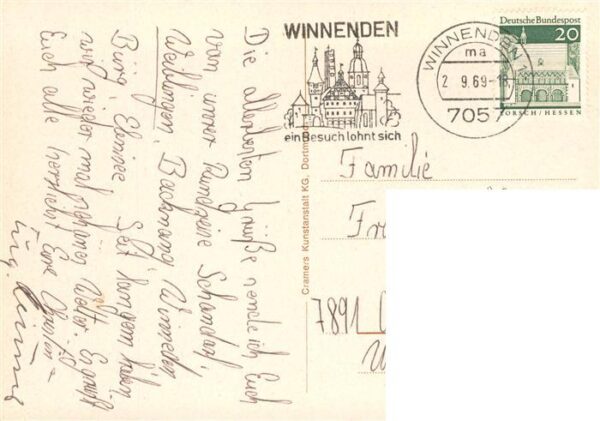 WINNENDEN
ein Besuch lohnt sich
WINNENDEN 1
ma
2. 9.69-18
7057
Deutsche Bundespost
20
LORSCH/HESSEN
Die allerbesten Grüße sende ich Euch
von unser Rundreise Schorndorf,
Waiblingen, Backnang, Winnenden
Seit langem haben
wir wieder mal schönes Wetter. Es grüßt
Euch alle herzlichst Eure
Cramers Kunstanstalt KG, Dortmund
Familie
Fr
7891